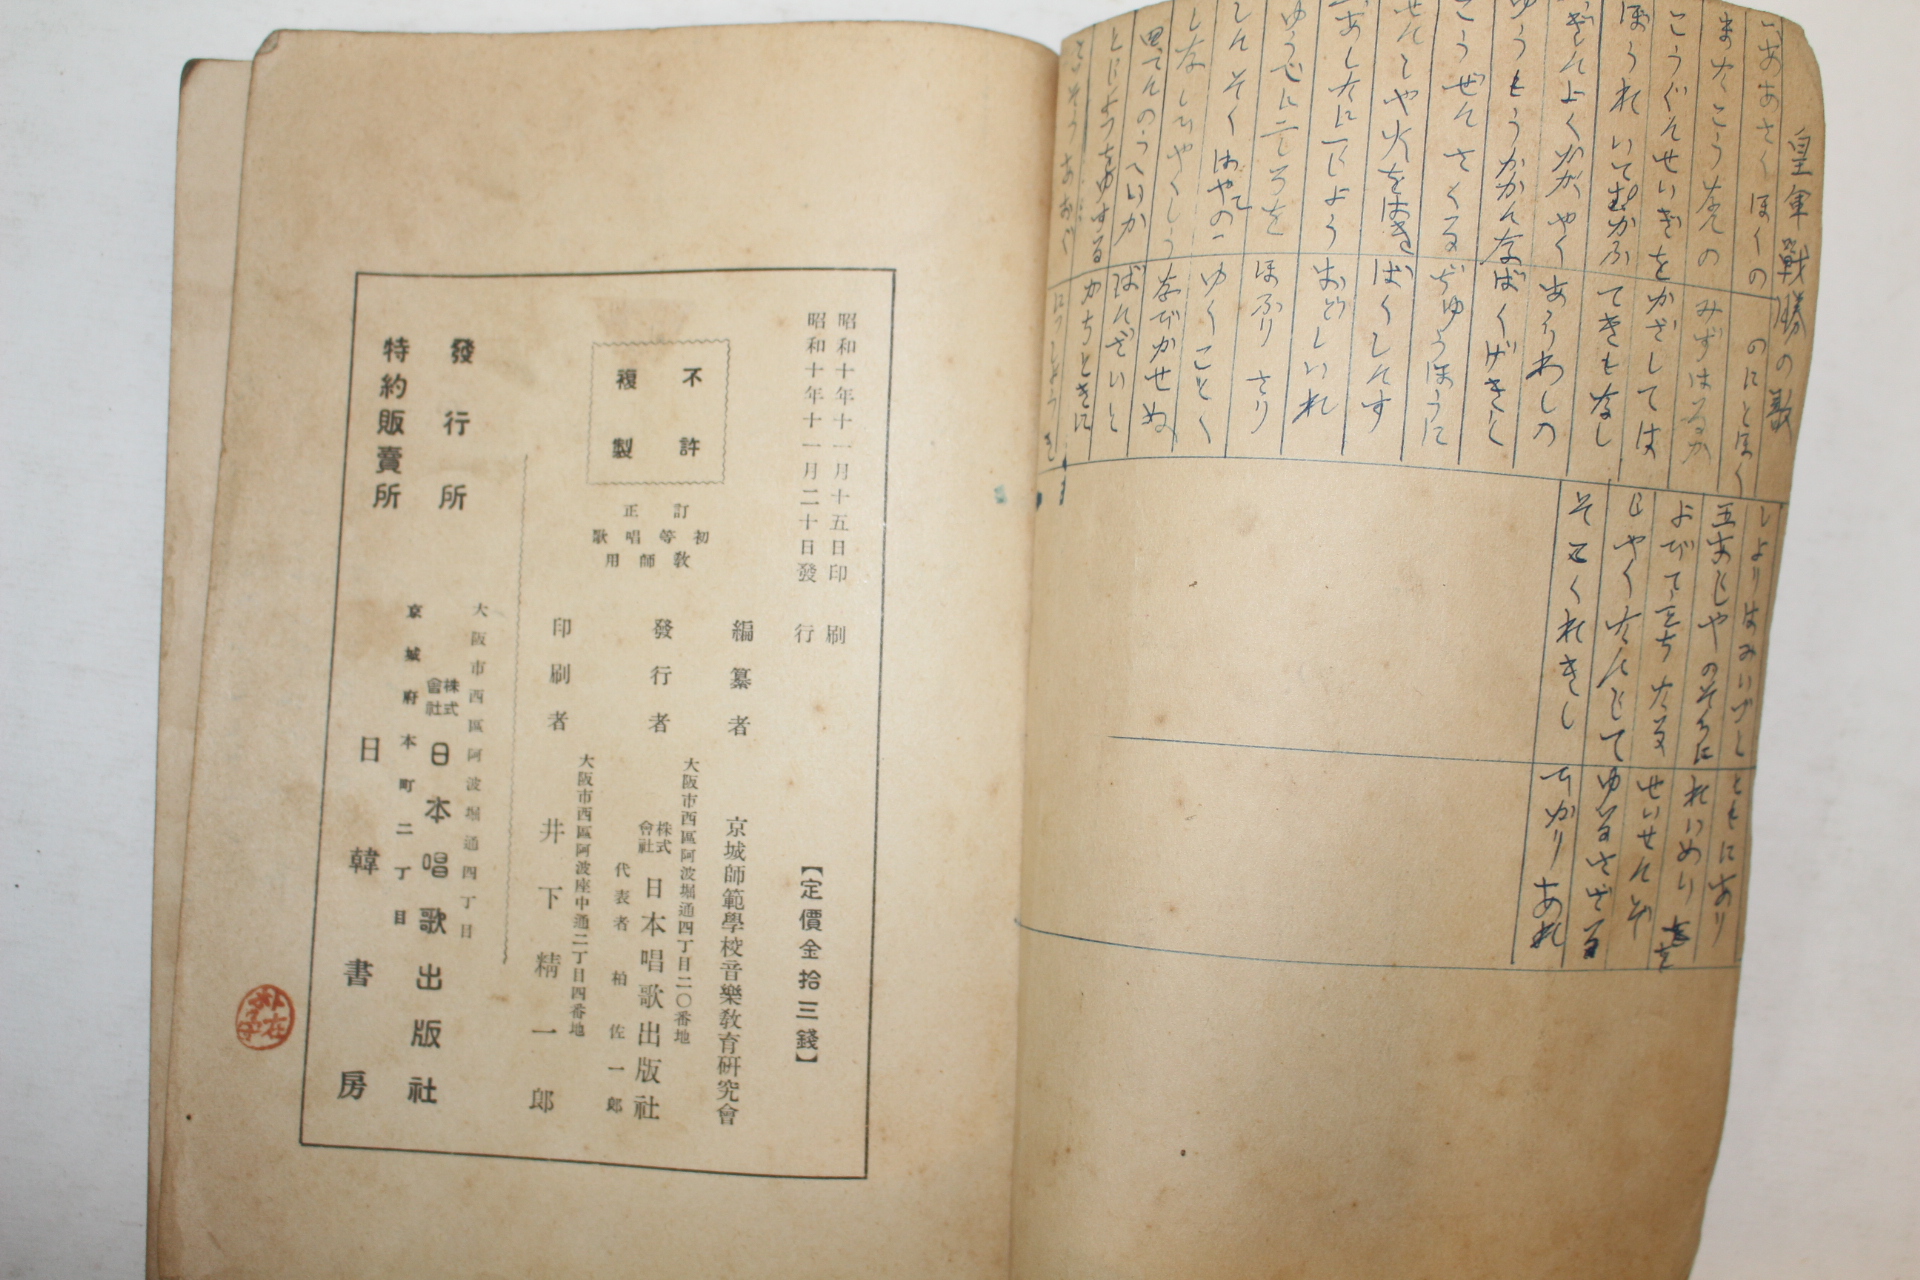 皇軍戰勝の歌
またこうなんの みずはるか
こうぐんせいぎを かざしては
ほうれいてむかふ てきもなし
ぎんよくかがやく あらわしの
ゆうもうかかんな ばくげきし
こうぜんさくる ぢゆうほうに
せんしや火をはき ばくしんす
あしたに一じよう おとしいれ
ゆうべに二じろを ほふりさり
しんそくはやのこ ゆくことく
しなしひやくしう なびかせぬ
ばんざいと
かちときに
しよりはみいづと ともにあり
五あじやのそらに れいめい を
よびて立ちたる せいせんぞ
じやくたんじて ゆるさざる
そこくれきし ひかりあれ
昭和十年十一月十五日印刷
昭和十年十一月二十日發行
【定價金拾三錢】
不許
複製
訂正
初等唱歌
敎師用
編纂者 京城師範學校音樂敎育硏究會
大阪市西區阿波堀通四丁目二〇番地
發行者 株式會社 日本唱歌出版社
代表者 柏佐一郎
大阪市西區阿波座中通二丁目四番地
印刷者 井下精一郎
大阪市西區阿波堀通四丁目
發行所 株式會社 日本唱歌出版社
京城府本町二丁目
特約販賣所 日韓書房